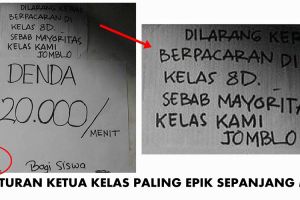 DILARANG KERAS
BERPACARAN DI
KELAS 8D.
SEBAB MAYORITAS
KELAS KAMI
JOMBLO
DENDA
20.000/
MENIT
Bagi Siswa
DILARANG
BERPACARAN DI
KELAS 8D.
SEBAB MAYORITAS
KELAS KAMI
JOMBLO
TURAN KETUA KELAS PALING EPIK SEPANJANG